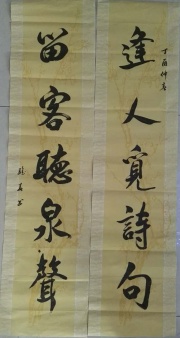 逢人觅詩句
丁酉仲春
留客聽泉聲